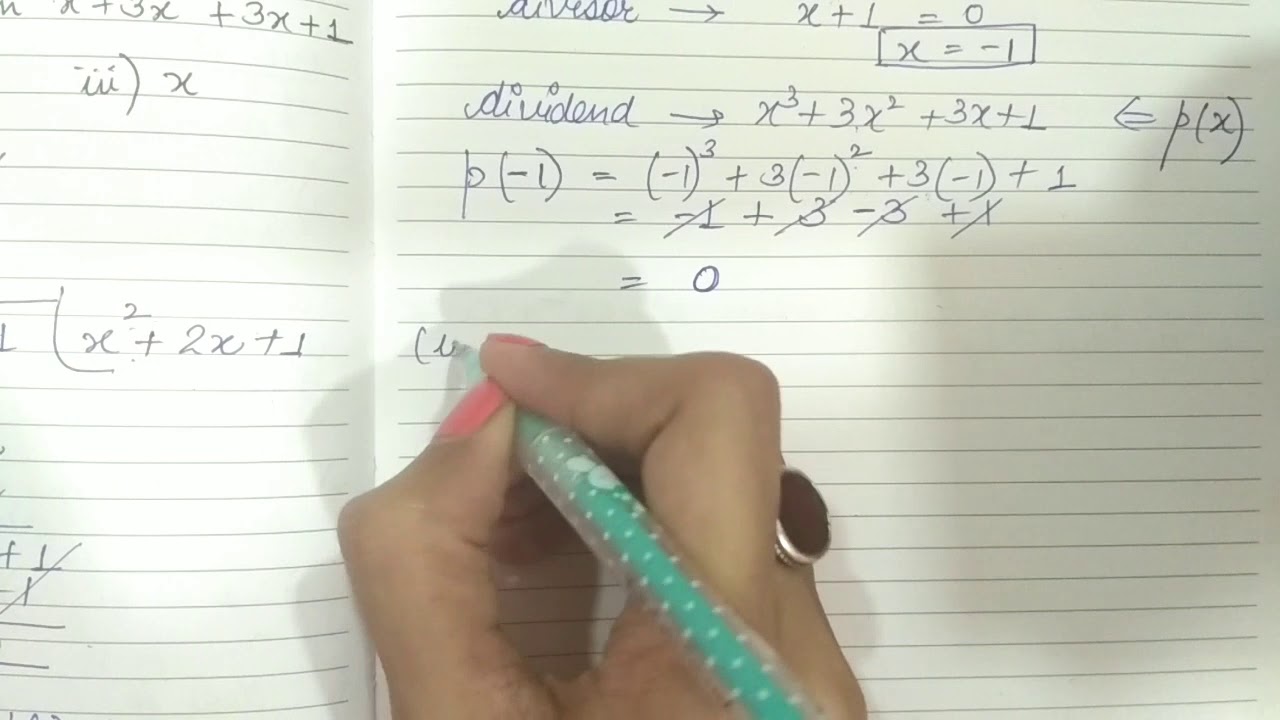 x³+3x² +3x+1
iii) x
1 x² + 2x + 1
+ 1
-1
divisor → x+1 = 0
x = -1
dividend → x³ + 3x² + 3x + 1 ⇐ p(x)
p(-1) = (-1)³ + 3(-1)² + 3(-1) + 1
= -1 + 3 - 3 + 1
= 0
(i